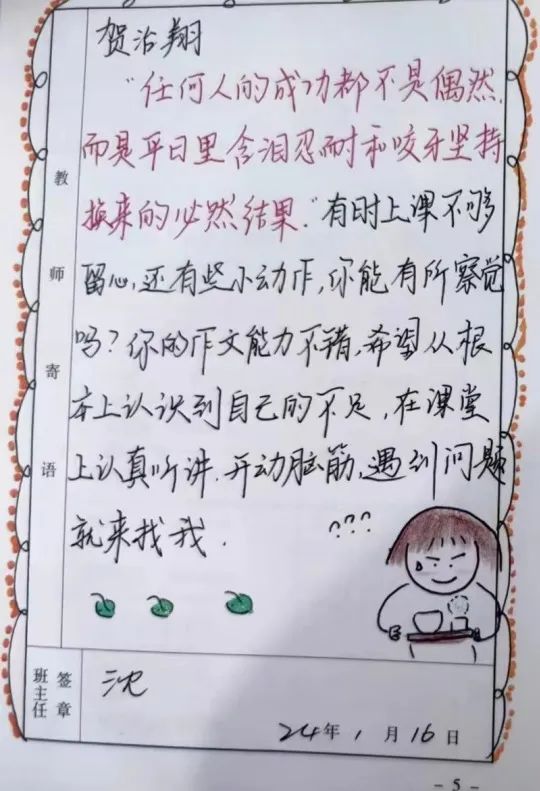 贺治翔
“任何人的成功都不是偶然,
而是平日里含泪忍耐和咬牙坚持
换来的必然结果.”有时上课不够
留心,还有些小动作,你能有所察觉
吗?你的作文能力不错,希望从根
本上认识到自己的不足,在课堂
上认真听讲.开动脑筋,遇到问题
就来找我.
???
教师寄语
班主任
签章
沈
24年1月16日
- 5 -